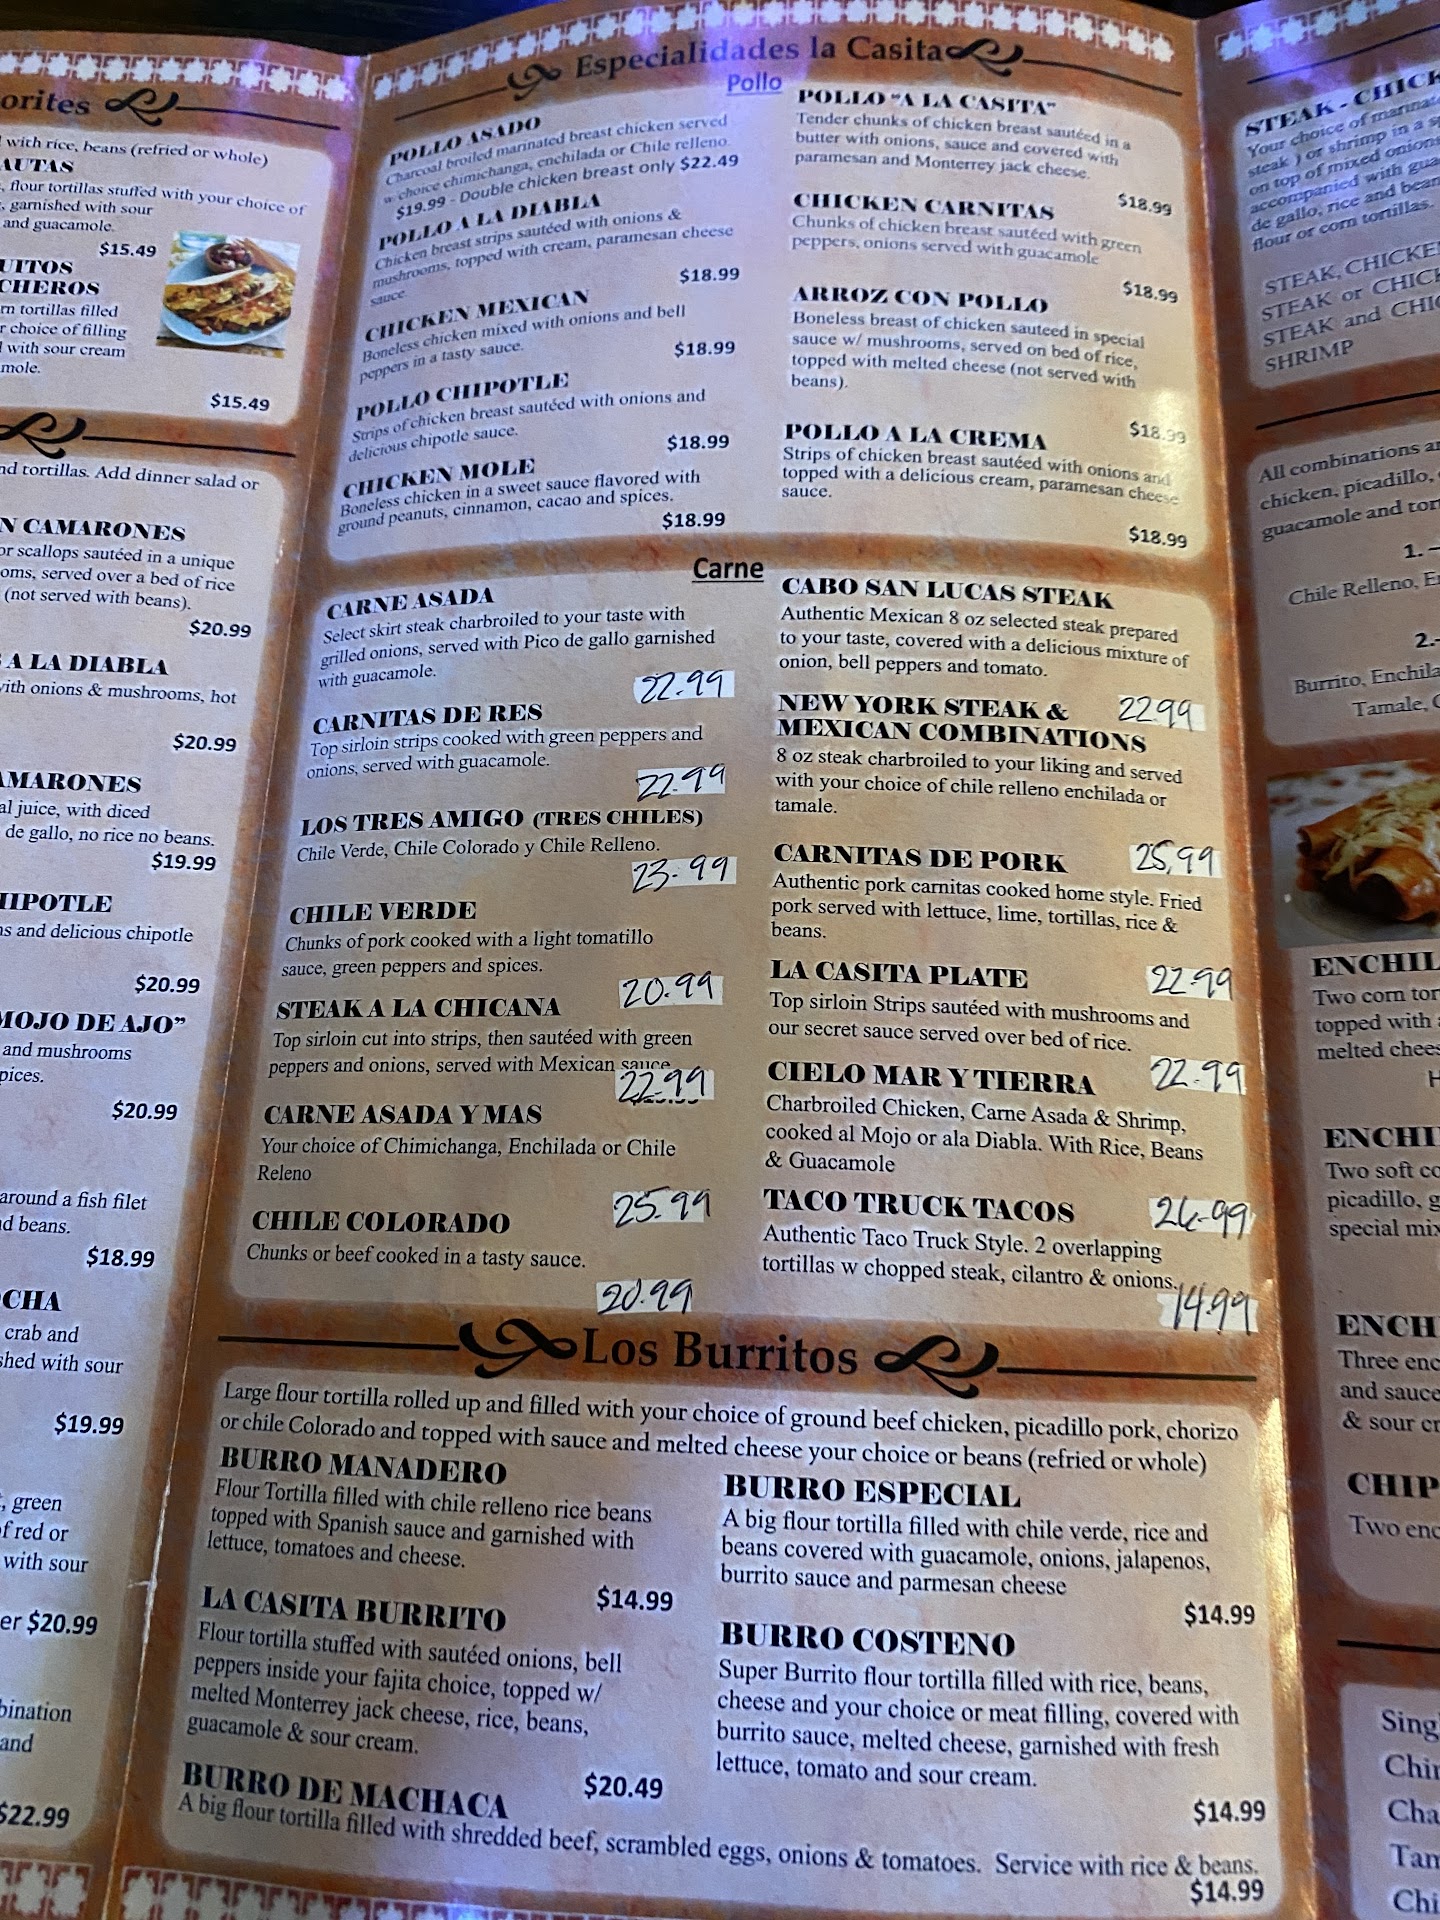 orites
with rice, beans (refried or whole)
AUTAS
, flour tortillas stuffed with your choice of
, garnished with sour
and guacamole.
$15.49
UITOS
CHEROS
rn tortillas filled
r choice of filling
with sour cream
mole.
$15.49
nd tortillas. Add dinner salad or
N CAMARONES
or scallops sautéed in a unique
oms, served over a bed of rice
(not served with beans).
$20.99
A LA DIABLA
with onions & mushrooms, hot
$20.99
AMARONES
al juice, with diced
de gallo, no rice no beans.
$19.99
HIPOTLE
ns and delicious chipotle
$20.99
MOJO DE AJO”
and mushrooms
pices.
$20.99
around a fish filet
d beans.
$18.99
OCHA
crab and
shed with sour
$19.99
, green
f red or
with sour
er $20.99
bination
and
$22.99
Especialidades la Casita
Pollo
POLLO ASADO
Charcoal broiled marinated breast chicken served
w choice chimichanga, enchilada or Chile relleno.
$19.99 - Double chicken breast only $22.49
POLLO A LA DIABLA
Chicken breast strips sautéed with onions &
mushrooms, topped with cream, paramesan cheese
sauce.
$18.99
CHICKEN MEXICAN
Boneless chicken mixed with onions and bell
peppers in a tasty sauce.
$18.99
POLLO CHIPOTLE
Strips of chicken breast sautéed with onions and
delicious chipotle sauce.
$18.99
CHICKEN MOLE
Boneless chicken in a sweet sauce flavored with
ground peanuts, cinnamon, cacao and spices.
$18.99
POLLO "A LA CASITA"
Tender chunks of chicken breast sautéed in a
butter with onions, sauce and covered with
paramesan and Monterrey jack cheese.
$18.99
CHICKEN CARNITAS
Chunks of chicken breast sautéed with green
peppers, onions served with guacamole
$18.99
ARROZ CON POLLO
Boneless breast of chicken sauteed in special
sauce w/ mushrooms, served on bed of rice,
topped with melted cheese (not served with
beans).
$18.99
POLLO A LA CREMA
Strips of chicken breast sautéed with onions and
topped with a delicious cream, paramesan cheese
sauce.
$18.99
Carne
CARNE ASADA
Select skirt steak charbroiled to your taste with
grilled onions, served with Pico de gallo garnished
with guacamole.
22.99
CARNITAS DE RES
Top sirloin strips cooked with green peppers and
onions, served with guacamole.
22.99
LOS TRES AMIGO (TRES CHILES)
Chile Verde, Chile Colorado y Chile Relleno.
23.99
CHILE VERDE
Chunks of pork cooked with a light tomatillo
sauce, green peppers and spices.
20.99
STEAK A LA CHICANA
Top sirloin cut into strips, then sautéed with green
peppers and onions, served with Mexican sauce
22.99
CARNE ASADA Y MAS
Your choice of Chimichanga, Enchilada or Chile
Releno
25.99
CHILE COLORADO
Chunks or beef cooked in a tasty sauce.
20.99
CABO SAN LUCAS STEAK
Authentic Mexican 8 oz selected steak prepared
to your taste, covered with a delicious mixture of
onion, bell peppers and tomato.
22.99
NEW YORK STEAK &
MEXICAN COMBINATIONS
8 oz steak charbroiled to your liking and served
with your choice of chile relleno enchilada or
tamale.
25,99
CARNITAS DE PORK
Authentic pork carnitas cooked home style. Fried
pork served with lettuce, lime, tortillas, rice &
beans.
22.99
LA CASITA PLATE
Top sirloin Strips sautéed with mushrooms and
our secret sauce served over bed of rice.
22.99
CIELO MAR Y TIERRA
Charbroiled Chicken, Carne Asada & Shrimp,
cooked al Mojo or ala Diabla. With Rice, Beans
& Guacamole
26.99
TACO TRUCK TACOS
Authentic Taco Truck Style. 2 overlapping
tortillas w chopped steak, cilantro & onions.
14.99
Los Burritos
Large flour tortilla rolled up and filled with your choice of ground beef chicken, picadillo pork, chorizo
or chile Colorado and topped with sauce and melted cheese your choice or beans (refried or whole)
BURRO MANADERO
Flour Tortilla filled with chile relleno rice beans
topped with Spanish sauce and garnished with
lettuce, tomatoes and cheese.
$14.99
LA CASITA BURRITO
Flour tortilla stuffed with sautéed onions, bell
peppers inside your fajita choice, topped w/
melted Monterrey jack cheese, rice, beans,
guacamole & sour cream.
$20.49
BURRO ESPECIAL
A big flour tortilla filled with chile verde, rice and
beans covered with guacamole, onions, jalapenos,
burrito sauce and parmesan cheese
$14.99
BURRO COSTENO
Super Burrito flour tortilla filled with rice, beans,
cheese and your choice or meat filling, covered with
burrito sauce, melted cheese, garnished with fresh
lettuce, tomato and sour cream.
$14.99
BURRO DE MACHACA
A big flour tortilla filled with shredded beef, scrambled eggs, onions & tomatoes. Service with rice & beans.
$14.99
STEAK - CHICK
Your choice of marinat
steak ) or shrimp in a sp
on top of mixed onions
accompanied with gua
de gallo, rice and bean
flour or corn tortillas.
STEAK, CHICKEN
STEAK or CHICK
STEAK and CHIC
SHRIMP
All combinations ar
chicken, picadillo,
guacamole and tort
1. –
Chile Relleno, En
2.-
Burrito, Enchila
Tamale, C
ENCHIL
Two corn tor
topped with a
melted chees
H
ENCHI
Two soft co
picadillo, g
special mix
ENCH
Three enc
and sauce
& sour cr
CHIP
Two enc
Sing
Chin
Cha
Tam
Chi